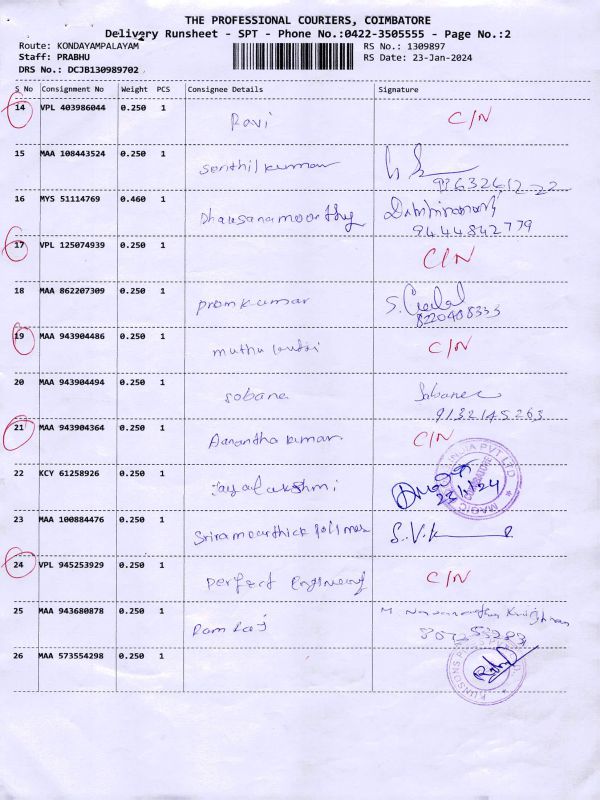 THE PROFESSIONAL COURIERS, COIMBATORE
Delivery Runsheet - SPT - Phone No.:0422-3505555 - Page No.:2
Route: KONDAYAMPALAYAM RS No.: 1309897
Staff: PRABHU RS Date: 23-Jan-2024
DRS No.: DCJB130989702
S No Consignment No Weight PCS Consignee Details Signature
14 VPL 403986044 0.250 1 Ravi C/N
15 MAA 108443524 0.250 1 Senthilkumar
16 MYS 51114769 0.460 1 Dhausanamoorthy
9444842779
17 VPL 125074939 0.250 1 C/N
18 MAA 862207309 0.250 1 premkumar
8220408333
19 MAA 943904486 0.250 1 muthu C/N
20 MAA 943904494 0.250 1 sobana Sobana
9132145263
21 MAA 943904364 0.250 1 Aanantha kumar C/N
22 KCY 61258926 0.250 1 Jayalakshmi
23/1/24
23 MAA 100884476 0.250 1 S.V.K
24 VPL 945253929 0.250 1 perfect C/N
25 MAA 943680878 0.250 1 Ram Raj
26 MAA 573554298 0.250 1